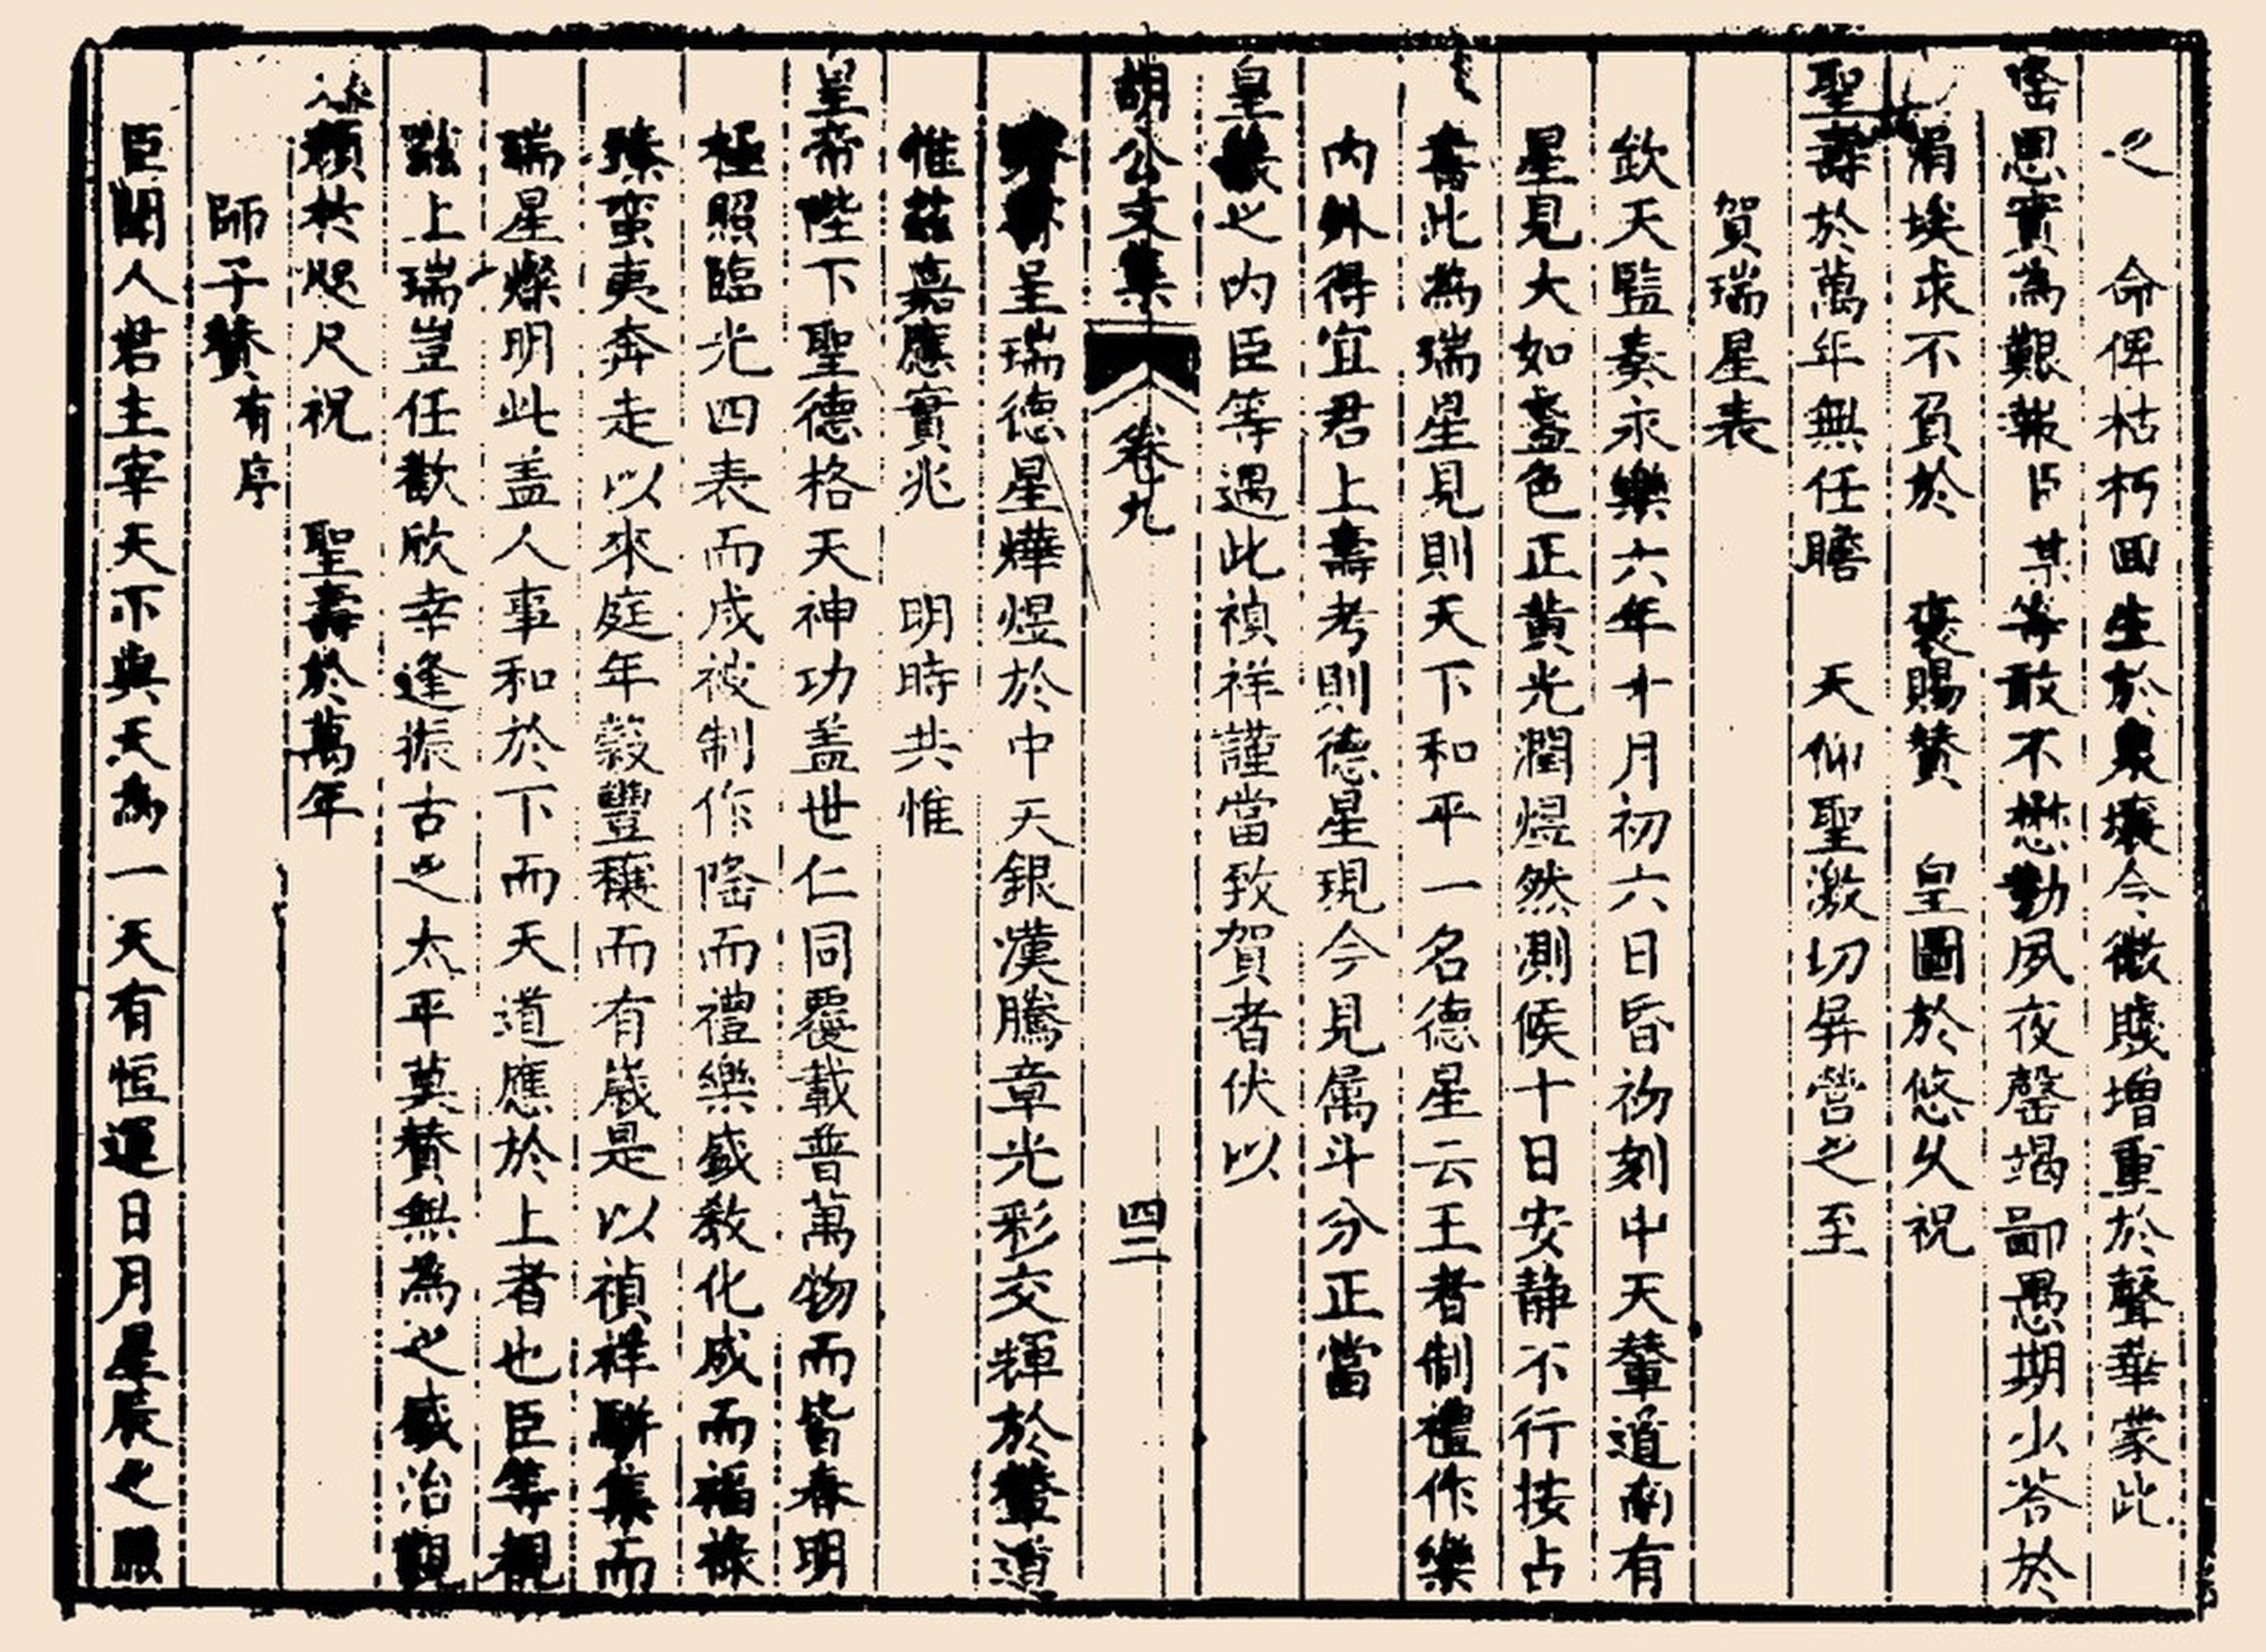 之　命俾枯朽回生於泉壤今微賤增重於聲華蒙此
密思實為艱報臣某等敢不懋勤夙夜罄竭鄙愚期少荅於
涓埃求不負於　褒賜賛　皇圖於悠久祝
聖壽於萬年無任瞻　天仰聖激切屏營之至
賀瑞星表
欽天監奏永樂六年十月初六日昏初刻中天輦道南有
星見大如盞色正黃光潤煜然測候十日安静不行按占
書此為瑞星見則天下和平一名德星云王者制禮作樂
内外得宜君上壽考則德星現今見属斗分正當
皇之内臣等遇此禎祥謹當致賀者伏以
胡公文集　卷九　四二
呈瑞德星燁煜於中天銀漢騰章光彩交輝於輦道
惟茲嘉應實兆　明時共惟
皇帝陛下聖德格天神功盖世仁同覆載普萬物而皆春明
極照臨光四表而咸被制作隆而禮樂盛教化成而福祿
臻蛮夷奔走以來庭年穀豐穰而有歲是以禎祥駢集而
瑞星燦明此盖人事和於下而天道應於上者也臣等覩
茲上瑞豈任歡欣幸逢振古之太平莫賛無為之盛治觀
顏於咫尺祝　聖壽於萬年
師子賛有序
臣聞人君主宰天下與天為一天有恒運日月星辰之照